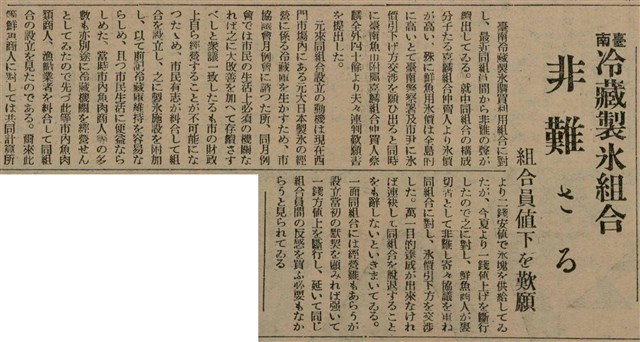 臺南 冷藏製氷組合
非難さる
組合員値下を歎願
臺南冷藏製氷購買利用組合に對
し、最近同組合員間から非難の聲が
擡出してゐる。就中同組合の構成
分子たる嘉賜組合仲買人より氷價
が高い、殊に鮮魚用氷價は全島的
に高いとて臺南警察署及市尹に氷
價引下げ方交渉を願ひ出ると同時
に臺南魚山組嘉賜組合仲買人祭
關金外四十餘より夫々連判歎願書
を提出した。
元來同組合設立の動機は現在西
門市場内にある元大日本製氷の經
營に係る冷藏庫を生かすため、市
協議會員例會に諮つた所、同月例
會では市民の生活上必須の機關な
れば之に大改善を加へて存續さす
べしと衆議一致したるも市の財政
上自ら經營することが不可能にな
つたゝめ、市民有志が糾合して組
合を設立し、之に製氷施設を附加
し、以て前記冷藏庫維持を容易な
らしめ、且つ市民生活に便益なら
しめた、當時市内魚肉商人等の多
數も亦別途に冷藏機關を經營せん
としてゐたので先づ此等市内魚肉
類商人、漁販業者を糾合して同組
合の設立を見たのである。爾來此
等鮮魚商人に對しては共同計算所
より二錢安値で氷塊を供給してゐ
たが、今夏より一錢値上げを斷行
したので之に對し、鮮魚商人が裏
切者として非難し寄々協議を重ね
同組合に對し、氷價引下方を交渉
した。萬一目的達成が出來なけれ
ば連袂して同組合を脱退すること
をも辭しないといきまいてゐる。
一面同組合には經營難もあらうが
設立當初の默契を顧みれば强いて
一錢方値上を斷行し、延いて同じ
組合員間の反感を買ふ必要もなか
らうと見られてゐる